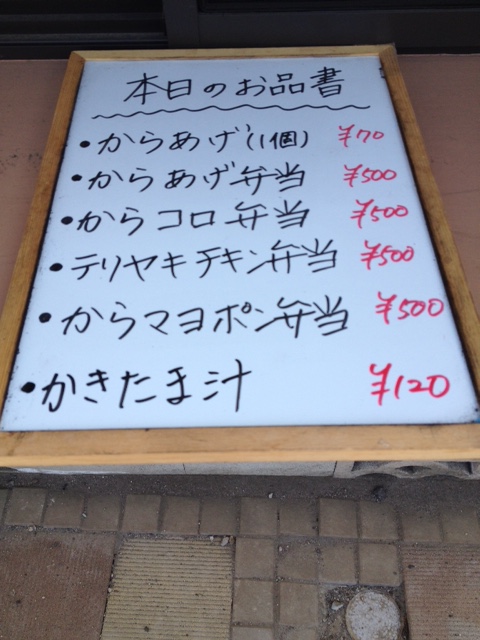 本日のお品書
•からあげ(1個) ¥70
•からあげ弁当 ¥500
•からコロ弁当 ¥500
•テリヤキチキン弁当 ¥500
•からマヨポン弁当 ¥500
•かきたま汁 ¥120